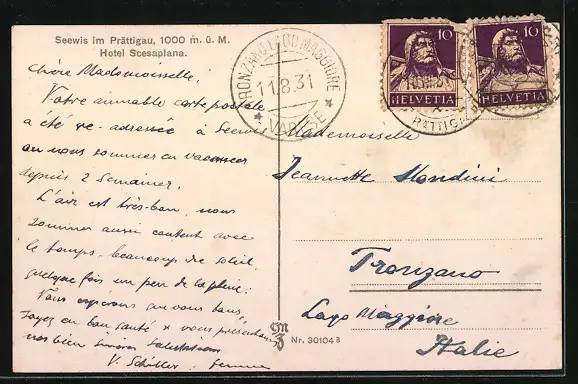 Seewis im Prättigau, 1000 m. ü. M.
Hotel Scesaplana.
Chère Mademoiselle,
Votre aimable carte postale
a été re-adressée à Seewis
où nous sommes en vacances
depuis 2 semaines.
L'air est très-bon, nous
sommes aussi content avec
le temps, beaucoup de soleil,
quelque fois un peu de la pluie.
Nous espérons que vous tous
soyez en bon santé & vous présentons
nos bien sincères salutations
V. Schiller - femme
TRONZANO LAGO MAGGIORE
11.8.31
* VARESE *
10
HELVETIA
10
HELVETIA
Mademoiselle
Jeannette Mondini
Tronzano
Lago Maggiore
Italie
Nr. 30104 B